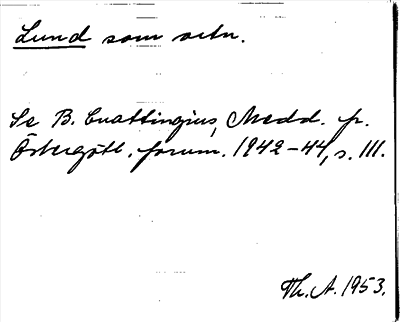 Lund som ortn.
Se B. Cnattingius, Medd. fr.
Östergötl. fornm. 1942-44, s. 111.
Th. A. 1953.